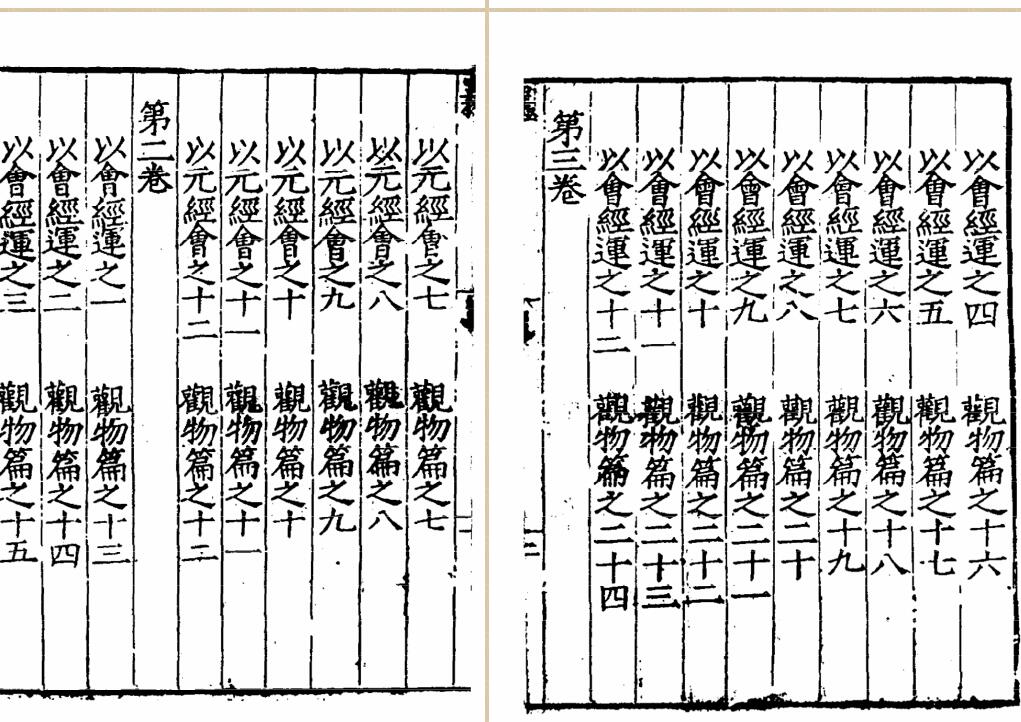 以元經會之七 觀物篇之七
以元經會之八 觀物篇之八
以元經會之九 觀物篇之九
以元經會之十 觀物篇之十
以元經會之十一 觀物篇之十一
以元經會之十二 觀物篇之十二
第二卷
以會經運之一 觀物篇之十三
以會經運之二 觀物篇之十四
以會經運之三 觀物篇之十五
以會經運之四 觀物篇之十六
以會經運之五 觀物篇之十七
以會經運之六 觀物篇之十八
以會經運之七 觀物篇之十九
以會經運之八 觀物篇之二十
以會經運之九 觀物篇之二十一
以會經運之十 觀物篇之二十二
以會經運之十一 觀物篇之二十三
以會經運之十二 觀物篇之二十四
第三卷